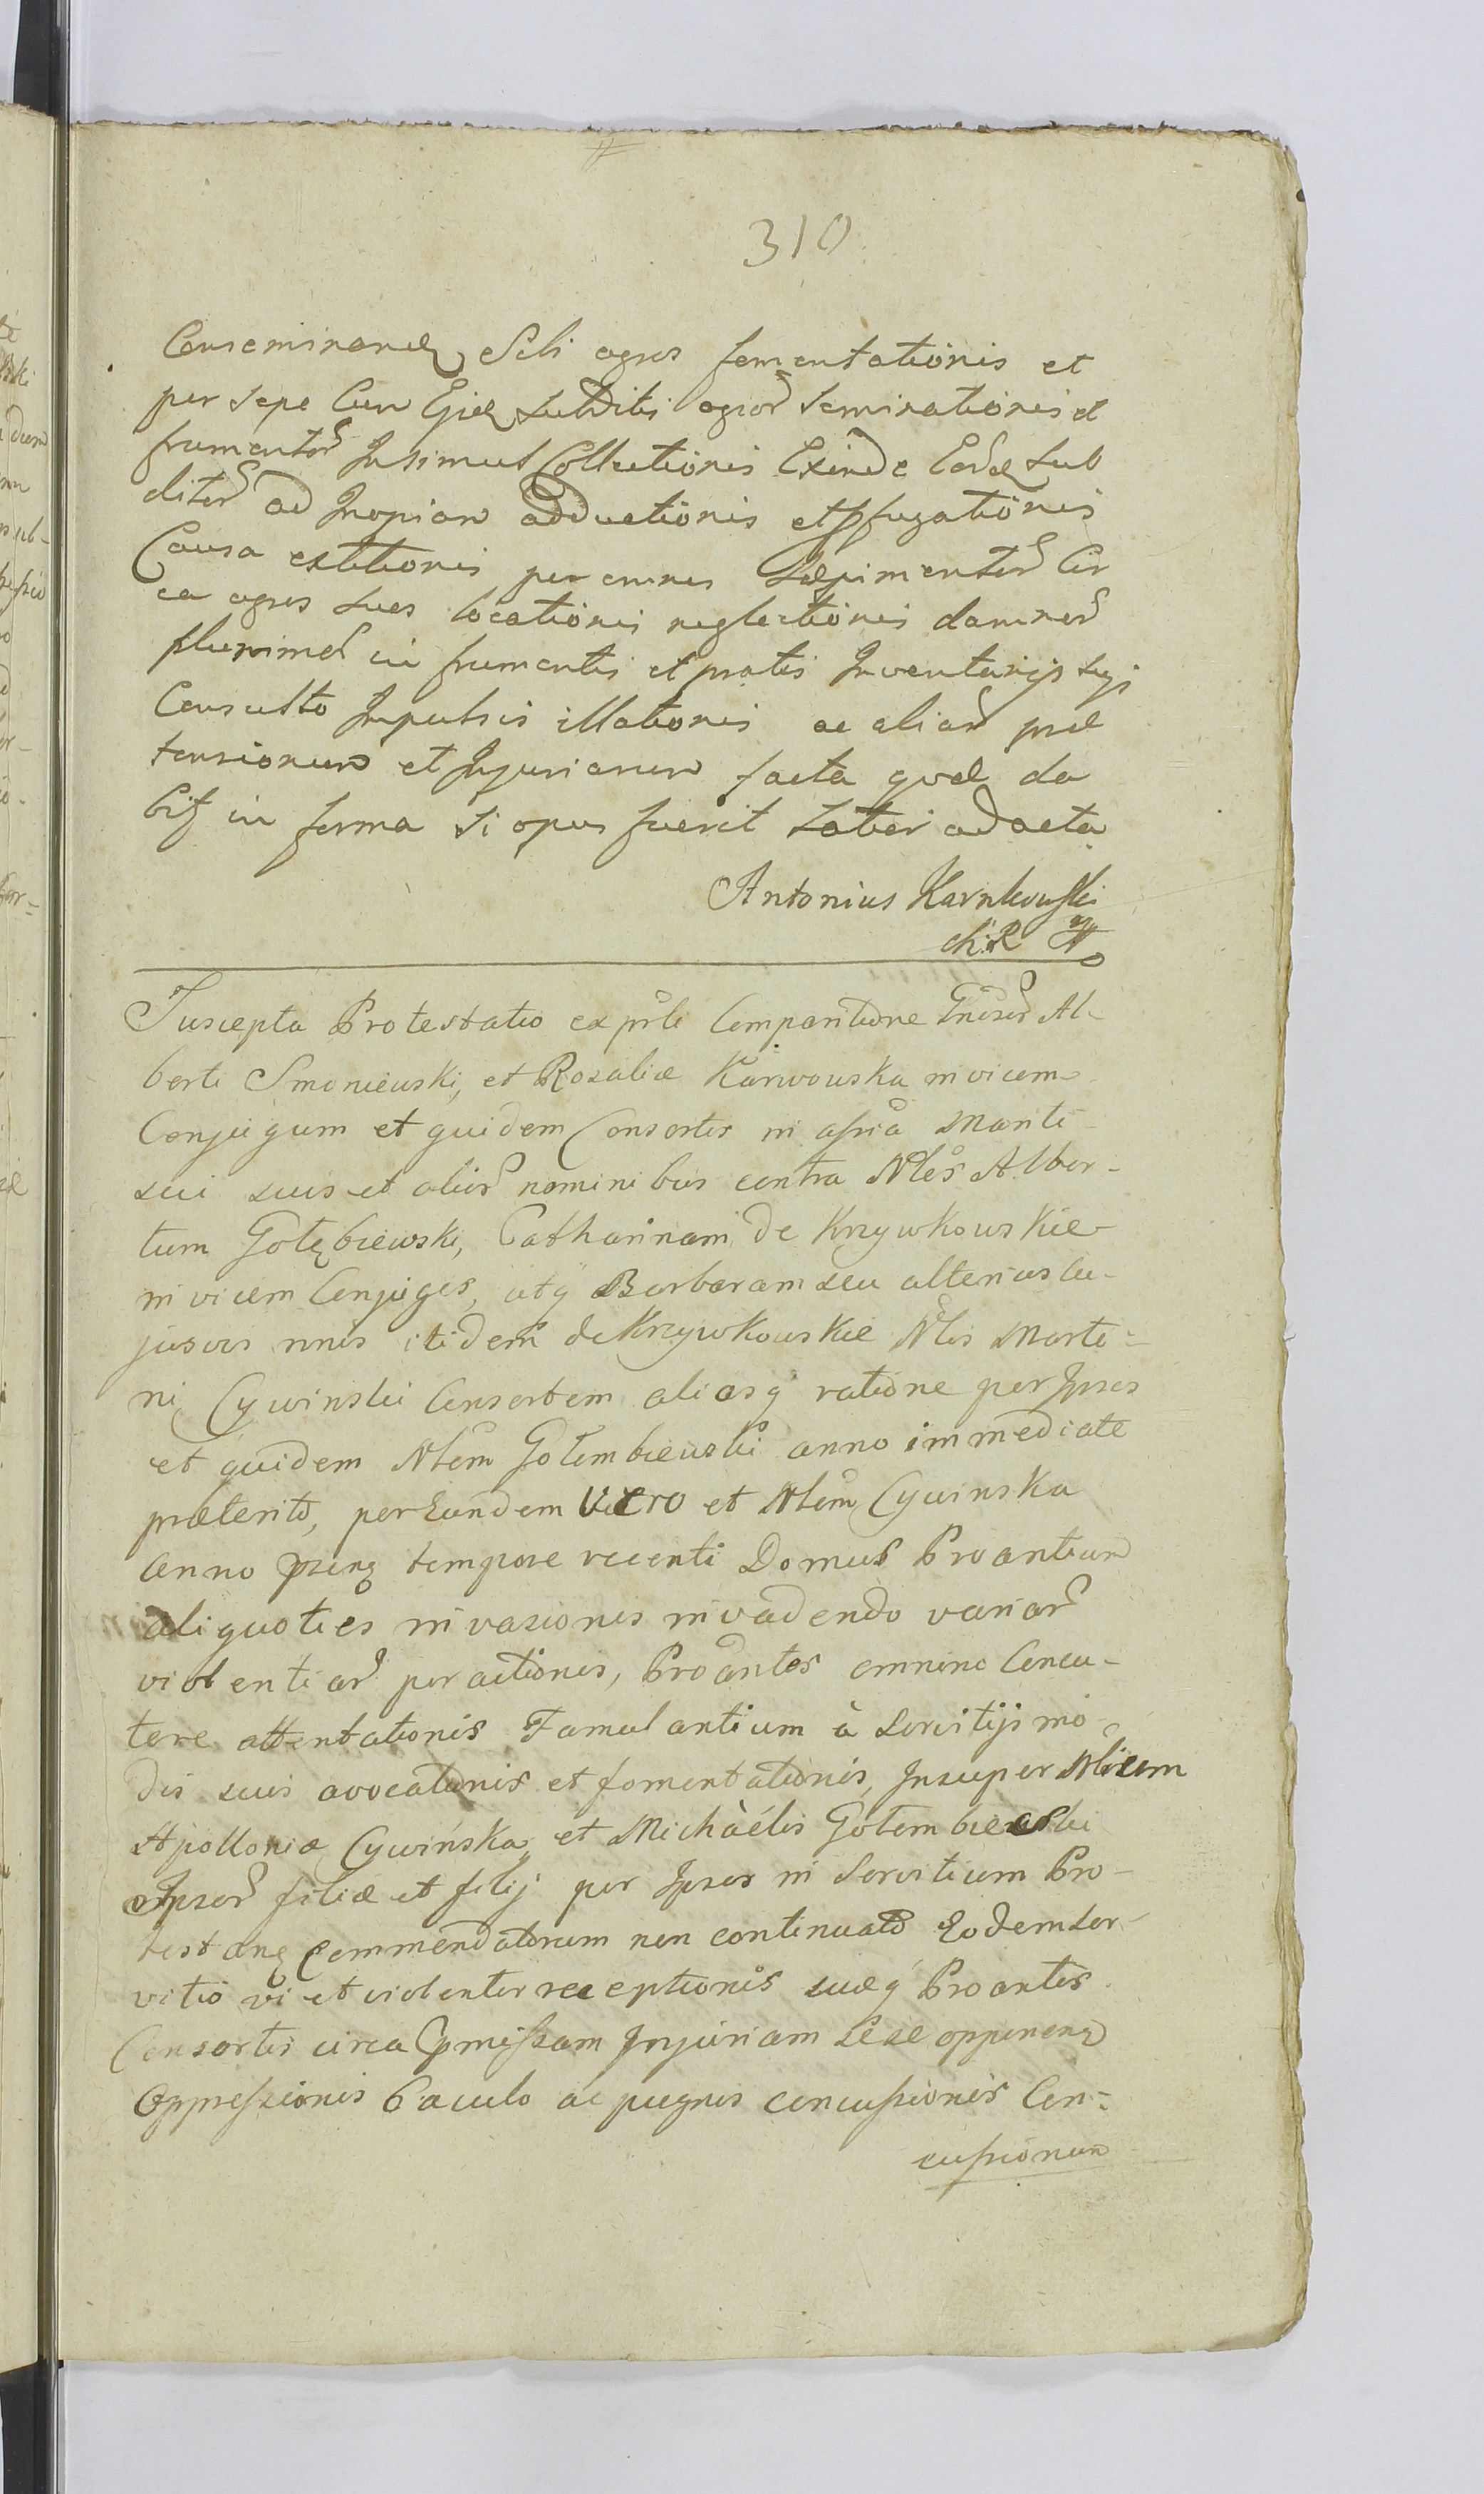 310
Conseminandi Sibi agros fomentationis et
per sepe Cum Ejusd subditis agror seminationis et
frumentor Insimul Collectionis Exinde Eord sub
ditor ad Inopiam adductionis et pfugationis
Causa extitionis per omnes Sæpimentor Cir
ca agros suos locationis neglectionis damnor
plurimor in frumentis et pratis Inventarijs suis
Consulto Impulsis illationis ac aliar præ
tensionum et Injuriarum facta quæ da
bit in forma si opus fuerit Later ad acta
Antonius Karnkowski
Suscepta Protestatio ex prsli Comparitione Gnosor Al-
berti Smoniewski, et Rozaliæ Karwowska invicem
Conjugum et quidem Consortis in assia Mariti
sui suis et alior nominibus contra Nles Alber-
tum Gołębiewski, Catharinam de Krzywkowskie
invicem Conjuges, atq Barbaram seu alterius cu-
jusvis nnis itidem de Krzywkowskie Nlis Marti-
ni Cywinski Consortem aliasq ratione per Ipsos
et quidem Nlem Gołembiewski anno immediate
præterito, per Eundem Vero et Nlem Cywinska
anno præn tempore recenti Domus Proantium
aliquoties invasionis invadendo variar
violentiar peractionis, Proantes omnino Concu-
tere attentationis Famulantium à Servitijs mo-
dis suis avocationis et fomentationis, Insuper Nlium
Apolloniæ Cywińska, et Michàélis Gołembiewski
Ipsor filiæ et filij per Ipsos in Servitium Pro-
testan Commendatorum non continuato Eodem ser-
vitio vi et violenter receptionis suæq Proantis
Consortis circa pmissam Injuriam sese opponen
Oppressionis baculo ac pugnis concussionis Con-
cussionum